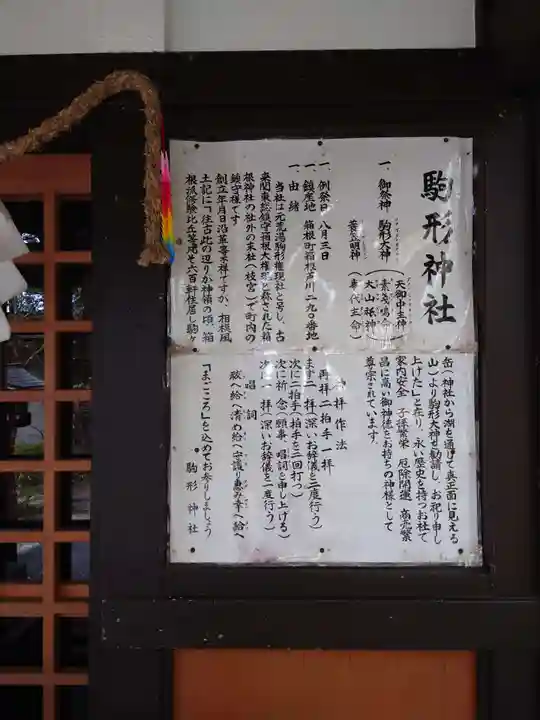 駒形神社
一、御祭神 駒形大神
（天御中主神
素淺嗚命
大山祇神）
蓑笠明神（事代主命）
一、例祭日 八月三日
一、鎮座地 箱根町箱根芦川二九〇番地
一、由緒
当社は元荒湯駒形権現社と号し、古
来関東総鎮守箱根大権現と称された箱
根神社の社外の末社（枝宮）で町内の
鎮守様です
創立年月日沿革等不詳ですが、相模風
土記に「往古此の辺りが神領の頃、箱
根派修験比丘等およそ六百軒住居し駒ヶ
岳（神社から湖を通して真正面に見える
山）より駒形大神を勧請し、お祀り申し
上げた」と在り、永い歴史を持つお社で
家内安全 子孫繁栄 厄除開運 商売繁
昌に高い御神徳をお持ちの神様として
尊宗されています。
神拝作法
再拝二拍手一拝
まず二拝（深いお辞儀を二度行う）
次に二拍手（拍手を二回打つ）
次に祈念（願事、唱詞を申し上げる）
次に一拝（深いお辞儀を一度行う）
唱詞
祓へ給へ清め給へ守り給へ幸へ給へ
「まごころ」を込めてお参りしましょう
駒形神社